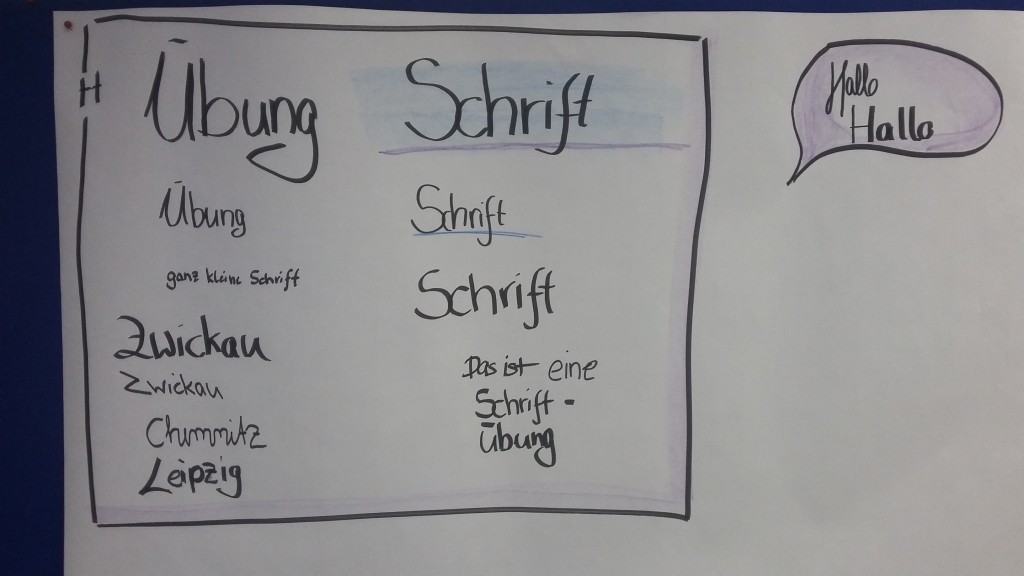 H
Übung
Übung
ganz kleine Schrift
Zwickau
Zwickau
Chmmnitz
Leipzig
Schrift
Schrift
Schrift
Das ist eine
Schrift-
Übung
Hallo
Hallo